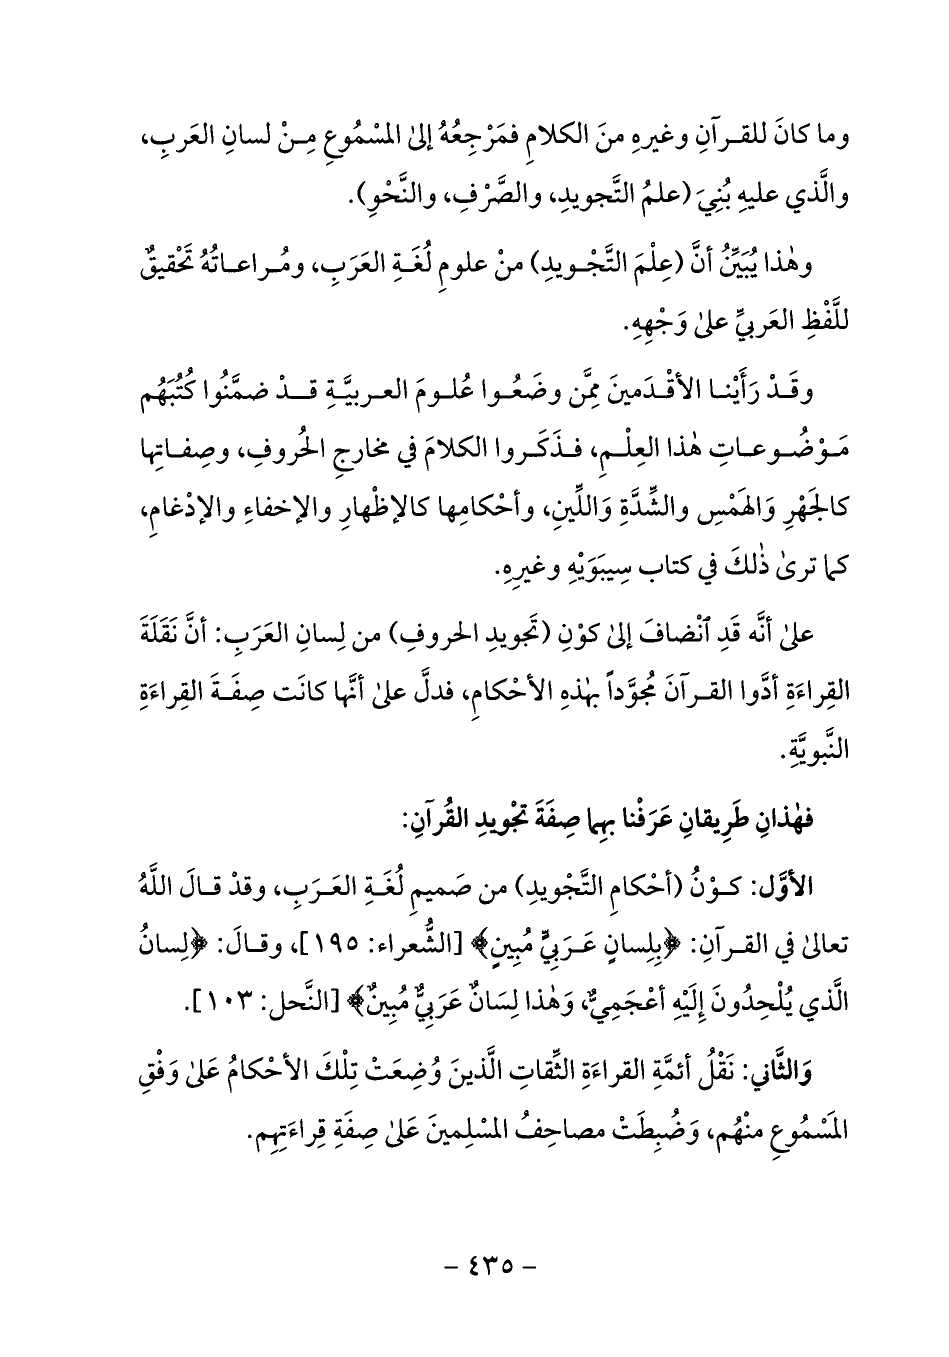 وما كانَ للقـرآنِ وغيرِهِ منَ الكلامِ فمَرْجِعُهُ إلىٰ المسْمُوعِ مِـنْ لسانِ العَربِ،
والَّذي عليهِ بُنِيَ (علمُ التَّجويدِ، والصَّرْفِ، والنَّحْوِ).
وهٰذا يُبَيِّنُ أنَّ (عِلْمَ التَّجْـويدِ) منْ علومِ لُغَـةِ العَرَبِ، ومُـراعـاتُهُ تَحْقيقٌ
للَّفْظِ العَربيِّ علىٰ وَجْهِهِ.
وقَـدْ رَأَيْنـا الأقْـدَمينَ مِمَّن وضَعُـوا عُلـومَ العـربيَّـةِ قـدْ ضمَّنُوا كُتُبَهُم
مَـوْضُـوعـاتِ هٰذا العِلْـمِ، فـذَكَـروا الكلامَ في مخارجِ الحُروفِ، وصِفـاتِها
كالجَهْرِ وَالهَمْسِ والشِّدَّةِ وَاللِّينِ، وأحْكامِها كالإظْهارِ والإخفاءِ والإدْغامِ،
كما ترىٰ ذٰلكَ في كتاب سِيبَوَيْهِ وغيرِهِ.
علىٰ أنَّه قَدِ ٱنْضافَ إلىٰ كوْنِ (تَجويدِ الحروفِ) من لِسانِ العَرَبِ: أنَّ نَقَلَةَ
القِراءَةِ أدَّوا القـرآنَ مُجوَّداً بهٰذهِ الأحْكامِ، فدلَّ علىٰ أنَّها كانَت صِفَـةَ القِراءَةِ
النَّبويَّةِ.
فهٰذانِ طَرِيقانِ عَرَفْنا بهِما صِفَةَ تجْويدِ القُرآنِ:
الأوَّل: كـوْنُ (أحْكامِ التَّجْويدِ) من صَميمِ لُغَـةِ العَـرَبِ، وقدْ قـالَ اللَّهُ
تعالىٰ في القـرآنِ: ﴿بِلِسانٍ عَـرَبِيٍّ مُبِينٍ﴾ [الشُّعراء: ١٩٥]، وقـالَ: ﴿لِسانُ
الَّذي يُلْحِدُونَ إِلَيْهِ أعْجَمِيٌّ، وَهٰذا لِسَانٌ عَرَبيٌّ مُبِينٌ﴾ [النَّحل: ١٠٣].
وَالثَّاني: نَقْلُ أئمَّةِ القراءَةِ الثِّقاتِ الَّذينَ وُضِعَتْ تِلْكَ الأحْكامُ عَلىٰ وَفْقِ
المَسْمُوعِ منْهُم، وَضُبِطَتْ مصاحِفُ المسْلِمينَ عَلىٰ صِفَةِ قِراءَتِهِم.
- ٤٣٥ -